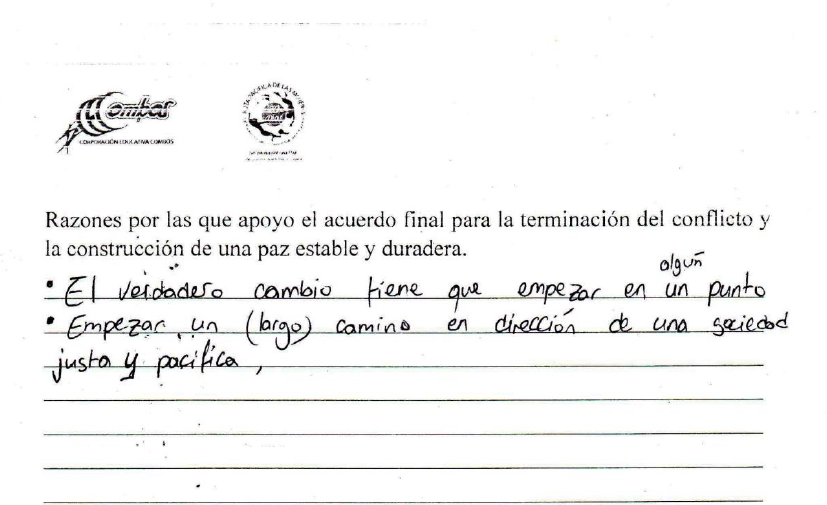 Combos
CORPORACIÓN EDUCATIVA COMBOS
Razones por las que apoyo el acuerdo final para la terminación del conflicto y
la construcción de una paz estable y duradera.
algún
• El verdadero cambio tiene que empezar en un punto
• Empezar un (largo) camino en dirección de una sociedad
justa y pacífica,